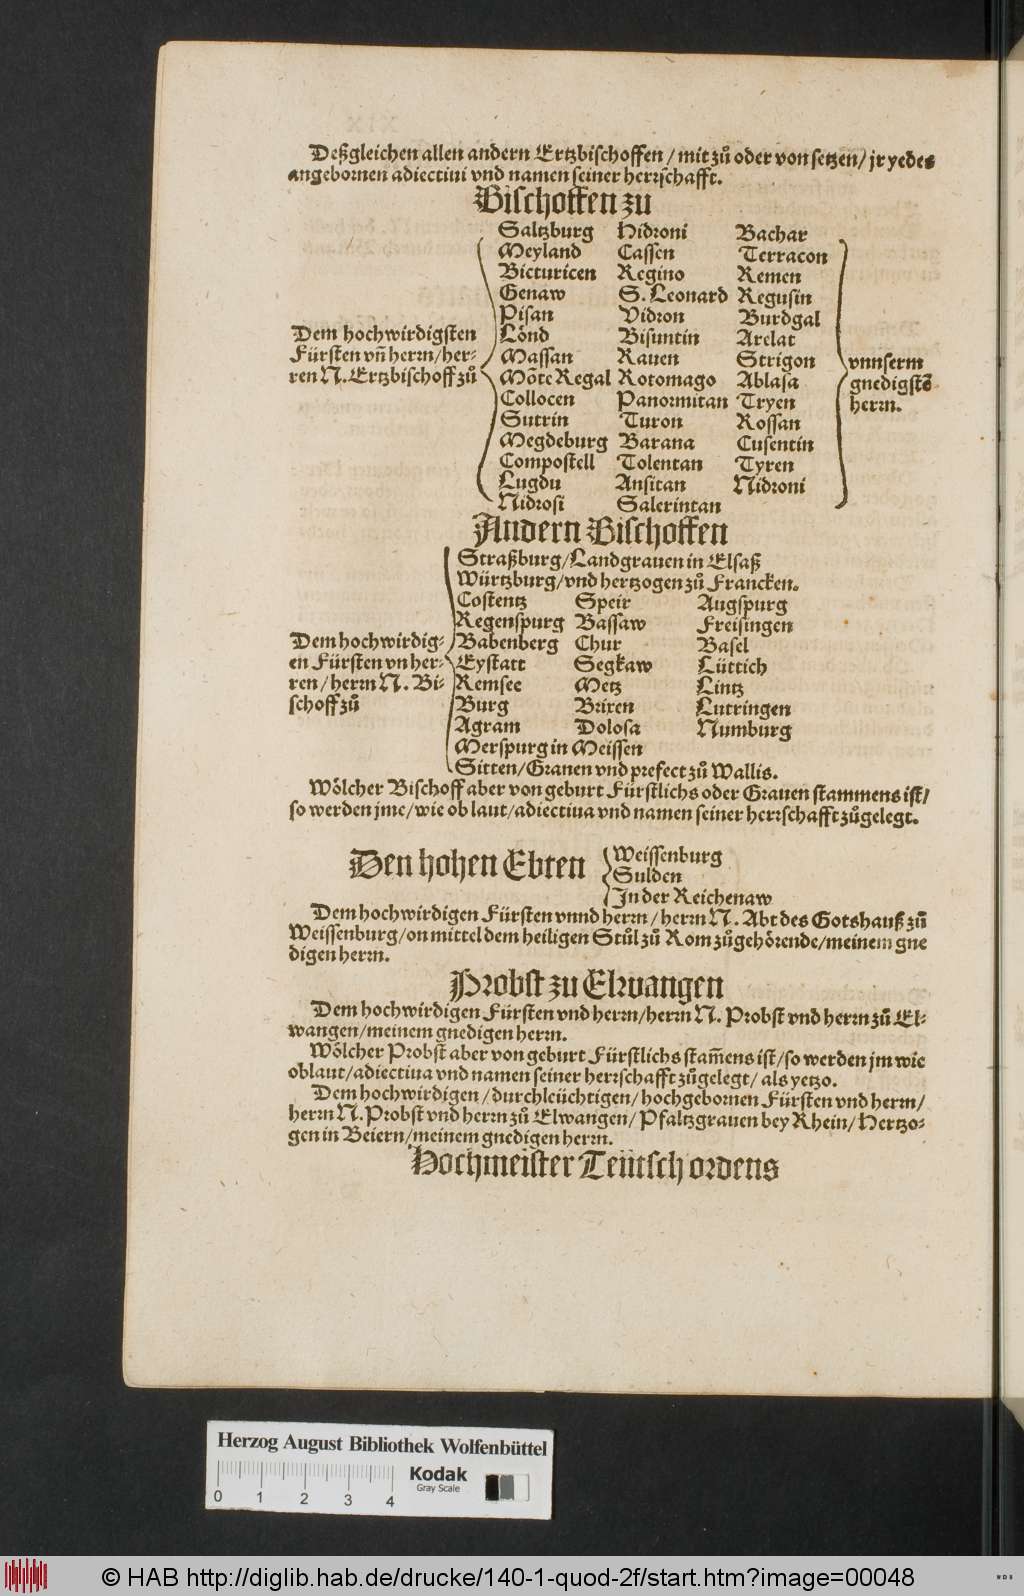 Deßgleichen allen andern Ertzbischoffen / mit zů oder von setzen / jr yedes
angebornen adiectiui vnd namen seiner herrschafft.
Bischoffen zu
Dem hochwirdigsten
Fürsten vñ herrn/her-
ren N. Ertzbischoff zů
Saltzburg Hidroni Bachar
Meyland Cassen Terracon
Bicturicen Regino Remen
Genaw S. Leonard Regusin
Pisan Vidron Burdgal
Lönd Bisuntin Arelat
Massan Rauen Strigon
Mõte Regal Rotomago Ablasa
Collocen Panormitan Tryen
Sutrin Turon Rossan
Megdeburg Barana Cusentin
Compostell Tolentan Tyren
Lugdu Ansitan Nidroni
Nidrosi Salerintan
vnnserm
gnedigstẽ
herrn.
Andern Bischoffen
Dem hochwirdig-
en Fürsten vn her-
ren / herrn N. Bi-
schoff zů
Straßburg/Landgrauen in Elsaß
Würtzburg/vnd hertzogen zů Francken.
Costentz Speir Augspurg
Regenspurg Bassaw Freisingen
Babenberg Chur Basel
Eystatt Segkaw Lüttich
Remsee Metz Lintz
Burg Brixen Lutringen
Agram Dolosa Numburg
Merspurg in Meissen
Sitten/Grauen vnd prefect zů Wallis.
Wölcher Bischoff aber von geburt Fürstlichs oder Grauen stammens ist/
so werden jme/wie ob laut/adiectiua vnd namen seiner herrschafft zůgelegt.
Den hohen Ebten
Weissenburg
Sulden
In der Reichenaw
Dem hochwirdigen Fürsten vnnd herrn / herrn N. Abt des Gotshauß zů
Weissenburg/on mittel dem heiligen Stůl zů Rom zůgehörende/meinem gne
digen herrn.
Probst zu Elwangen
Dem hochwirdigen Fürsten vnd herrn/herrn N. Probst vnd herrn zů El-
wangen/meinem gnedigen herrn.
Wölcher Probst aber von geburt Fürstlichs stam̃ens ist/so werden jm wie
oblaut/adiectiua vnd namen seiner herrschafft zůgelegt/ als yetzo.
Dem hochwirdigen /durchleüchtigen/ hochgebornen Fürsten vnd herrn/
herrn N. Probst vnd herrn zů Elwangen/ Pfaltzgrauen bey Rhein/ Hertzo-
gen in Beiern/meinem gnedigen herrn.
Hochmeister Teütsch ordens
Herzog August Bibliothek Wolfenbüttel
Kodak
Gray Scale
0 1 2 3 4
© HAB http://diglib.hab.de/drucke/140-1-quod-2f/start.htm?image=00048